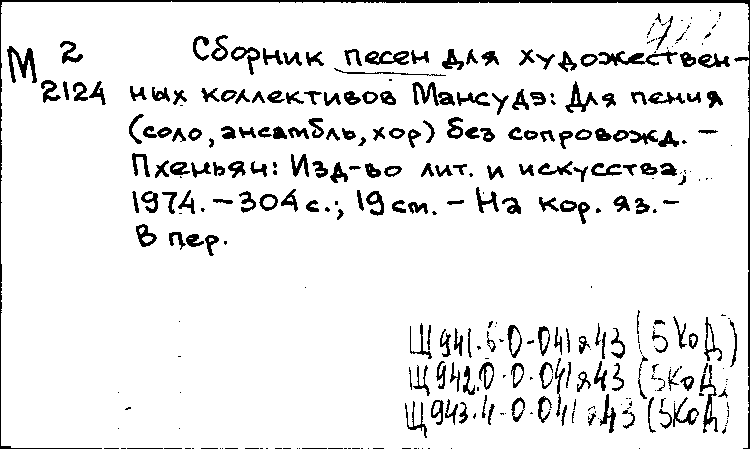 М 2
2124
Сборник песен для художествен-
ных коллективов Мансудэ: Для пения
(соло, ансамбль, хор) без сопровожд. –
Пхеньян: Изд-во лит. и искусства,
1974. – 304 с.; 19 cm. – На кор. яз. –
В пер.
Щ 941.6-0-041я43 (5КоД)
Щ 942.0-0-041я43 (5КоД)
Щ 943.4-0-041я43 (5КоД)